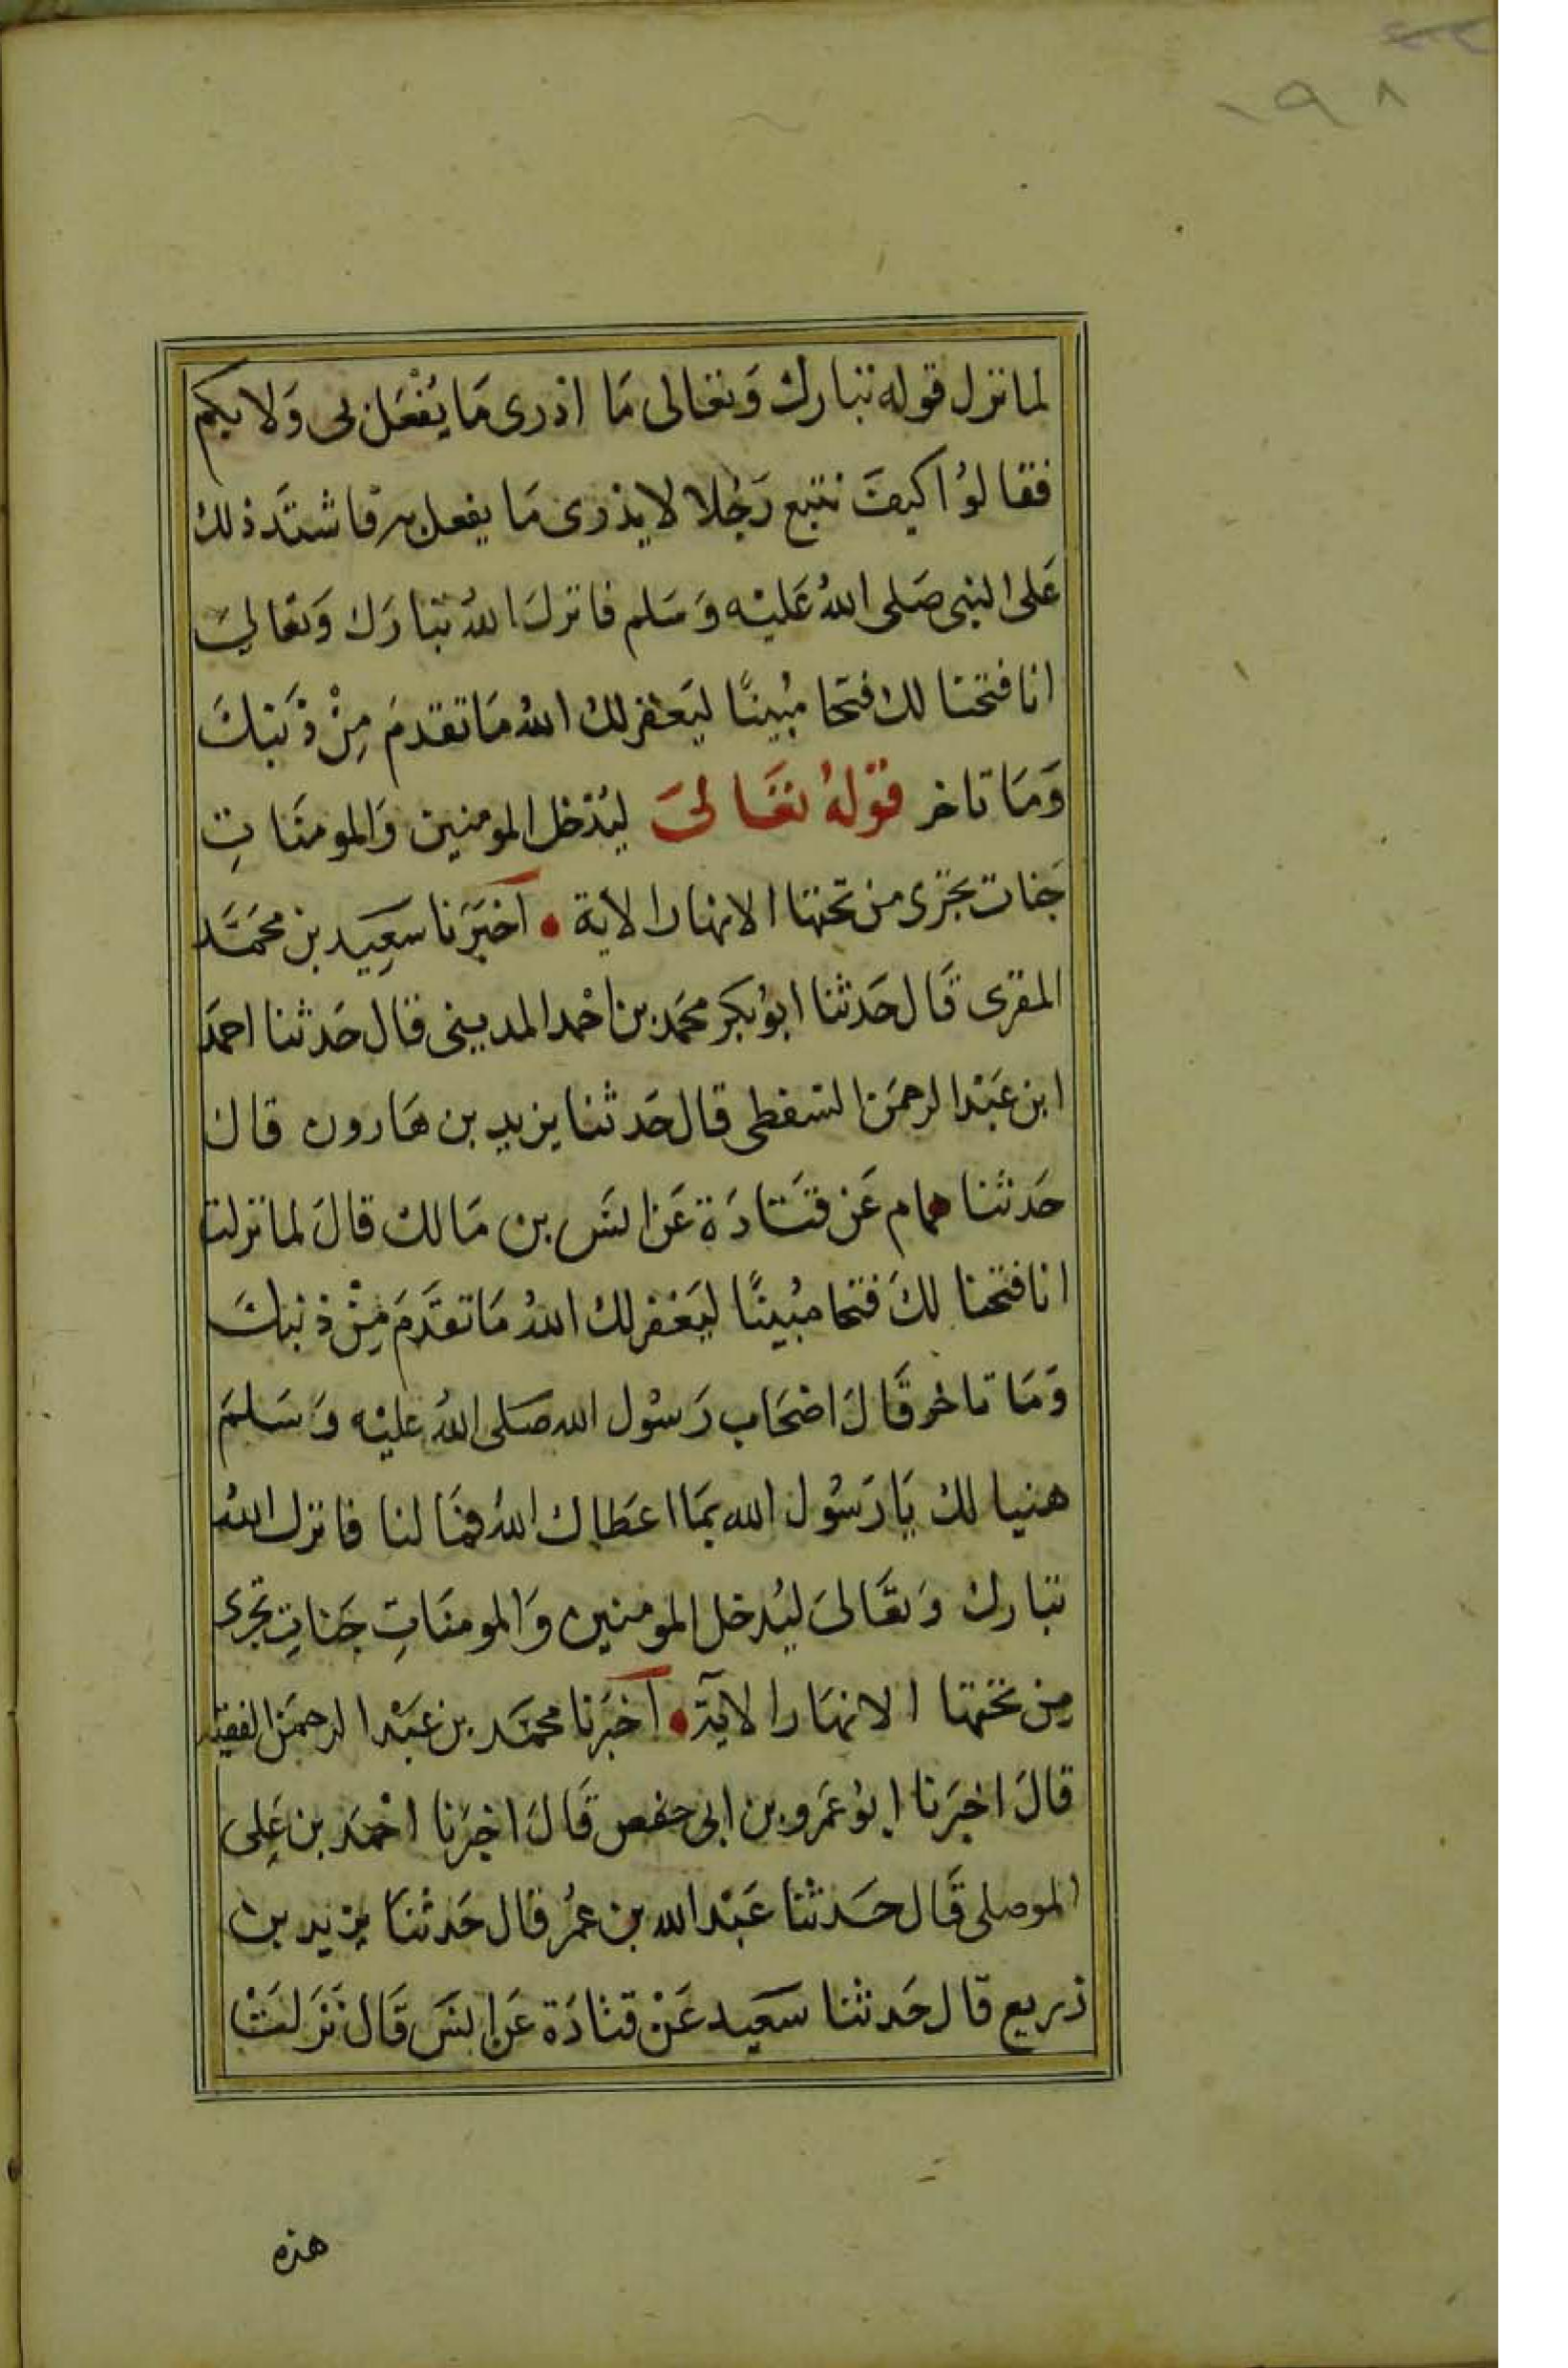 ١٩٨
لما نزل قوله تبارك وَتعَالى مَا ادْرى مَا يُفْعَل بى وَلا بكم
فقالوُا كيفَ نتبع رَجُلا لا يدْرى مَا يفعل به فاشتدَّ ذلك
عَلى النبى صَلى اللهُ عَليْه وَسَلم فانزلَ اللهُ تبارَك وَتعَالىَ
انا فتحنا لك فتحَا مُبينًا ليَغفر لك اللهُ مَا تقدمَ مِنْ ذَنبكَ
وَمَا تاخر قوْلهُ تعَالىَ ليُدْخل المومنين وَالمومنَاتِ
جَنات تجْرى من تحتها الانهار الاية • اخبَرَنا سَعِيد بن محمَّد
المقرى قَال حَدثنا ابوُبكر محمَد بن احْمد المدينى قال حَدثنا احمَد
ابن عَبْد الرحمَن السَّقطى قال حَدثنا يزيد بن هَارون قال
حَدثنا همام عَن قتَادَة عَن انسَ بن مَالك قالَ لما نزلت
انا فتحنا لكَ فتحا مبُينًا ليَغفر لك اللهُ مَا تقدَّمَ مِنْ ذنبكَ
وَمَا تاخر قَالَ اصْحَاب رَسوُل الله صَلى اللهُ عليْه وَسَلمَ
هنيا لك يَا رَسُول الله بمَا اعطاك اللهُ فمَا لنا فانزل اللهُ
تبارك وَتعَالىَ ليُدخل المومنين وَالمومنَاتِ جَناتٍ تجرى
مِن تحتها الانهَار الايَة • اخبَرنا محمَّد بن عَبْد الرحمَن الفقيه
قالَ اخبَرنا ابوُ عَمرو بن ابى حفص قَالَ اخبَرنا احْمَد بن عَلِى
الموصلى قَال حَدثْنا عَبْد الله بن عمُر قال حَدثنَا يزيد بن
زريع قال حَدثنا سَعَيد عَنْ قتادَة عَن انسَ قَال نَزلتْ
هذه